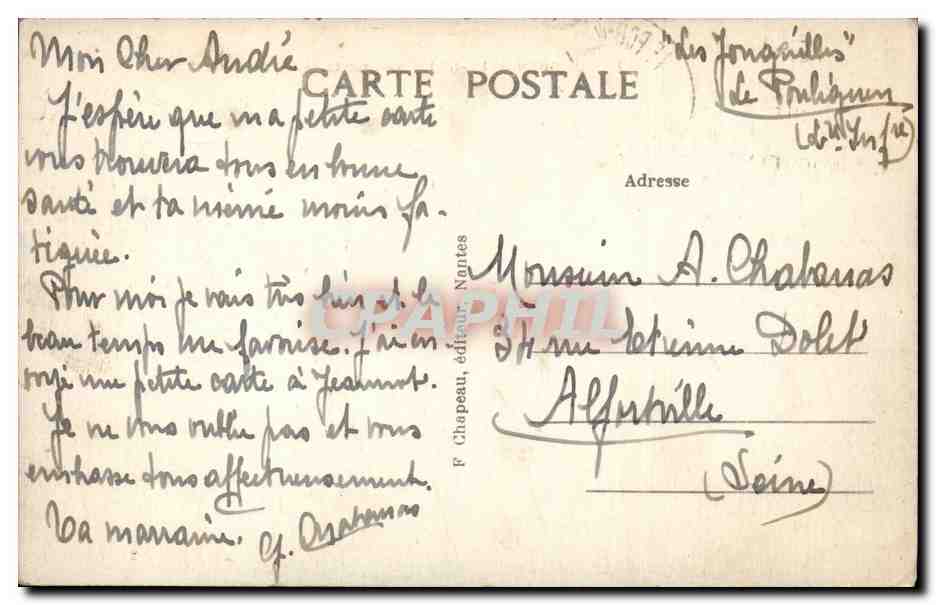 Mon Cher André
J'espère que ma petite carte
vous trouvera tous en bonne
santé et ta mémé moins fa-
tiguée.
Pour moi je vais très bien et le
beau temps me favorise. J'ai en-
voyé une petite carte à Jeannot.
Je ne vous oublie pas et vous
embrasse tous affectueusement.
Ta marraine. G. Chabanas
CARTE POSTALE
"Les Jonquilles"
Le Pouliguen
(Lre Infre)
Adresse
Monsieur A. Chabanas
34 rue Etienne Dolet
Alfortville
(Seine)
F Chapeau, éditeur, Nantes
CPAPHIL